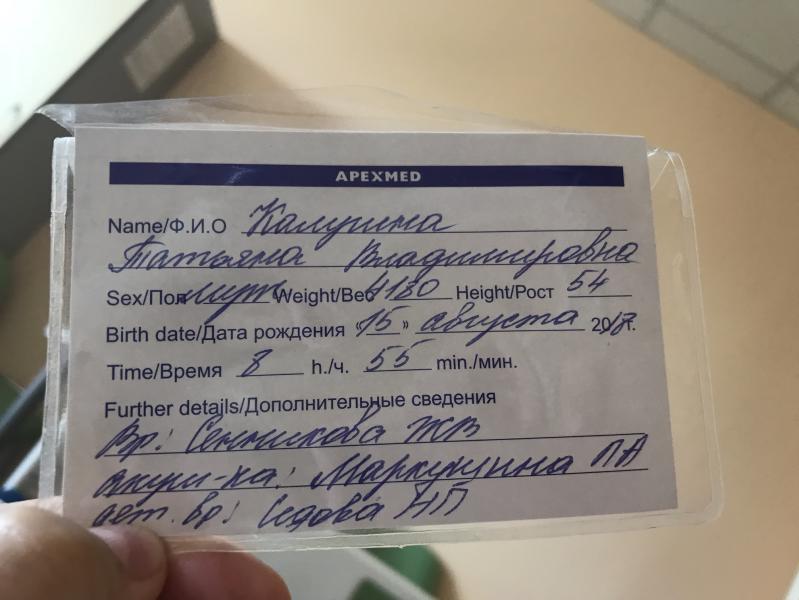 APEXMED
Name/Ф.И.О Калугина
Татьяна Владимировна
Sex/Пол муж Weight/Вес 4180 Height/Рост 54
Birth date/Дата рождения «15» августа 2018г.
Time/Время 8 h./ч. 55 min./мин.
Further details/Дополнительные сведения
Вр: Сенникова ЖВ
акуш-ка: Маркушина ЛА
дет. вр: Седова НП